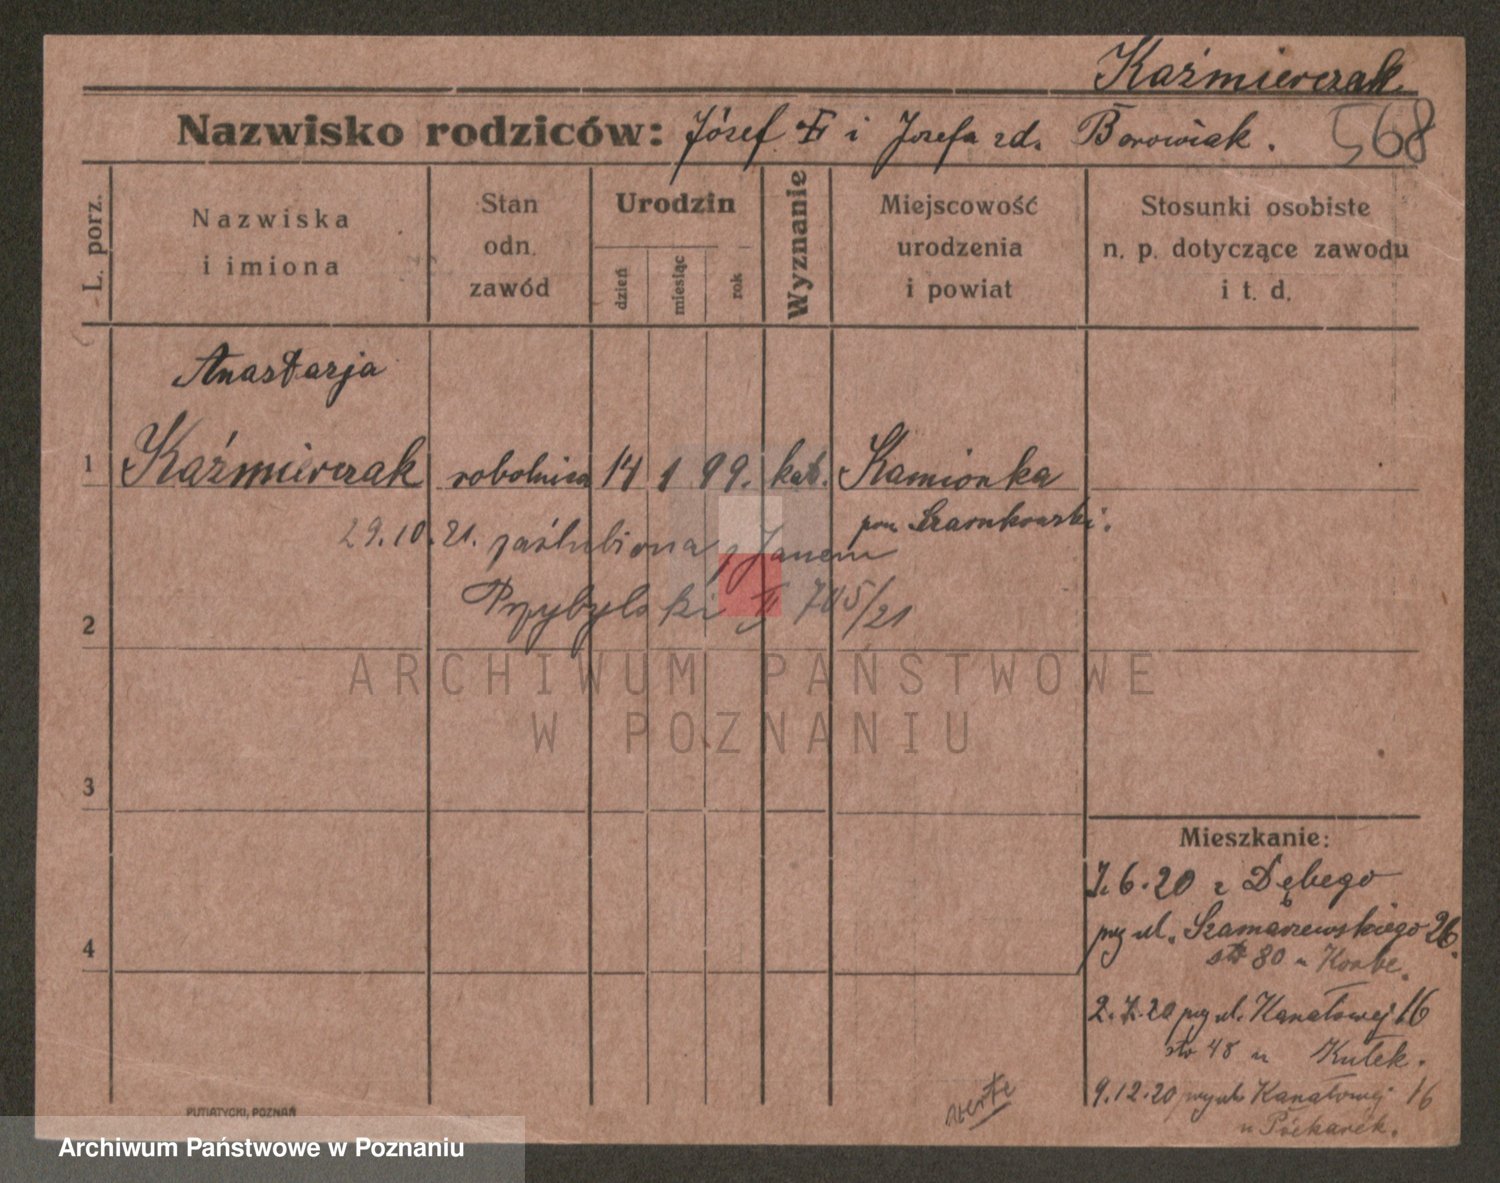 Kaźmierczak
Nazwisko rodziców: Józef i Jozefa zd. Borowiak.
568
L. porz.
Nazwiska
i imiona
Stan
odn.
zawód
Urodzin
dzień
miesiąc
rok
Wyznanie
Miejscowość
urodzenia
i powiat
Stosunki osobiste
n. p. dotyczące zawodu
i t. d.
Anastazja
1 Kaźmierczak robotnica 14 1 99. kat. Kamionka
pow. Szamkowski.
29.10.21. zaślubiona z Janem
Przybylski 705/21
2
3
4
Mieszkanie:
7.6.20 z Dębego
przy ul. Szamarzewskiego 26.
str 80 u Korbe.
2.7.20 przy ul. Kanałowej 16
str 48 u Kulek.
9.12.20 przy ul. Kanałowej 16
u Piekarek.
verte
PUTIATYCKI, POZNAŃ
ARCHIWUM PAŃSTWOWE
W POZNANIU
Archiwum Państwowe w Poznaniu